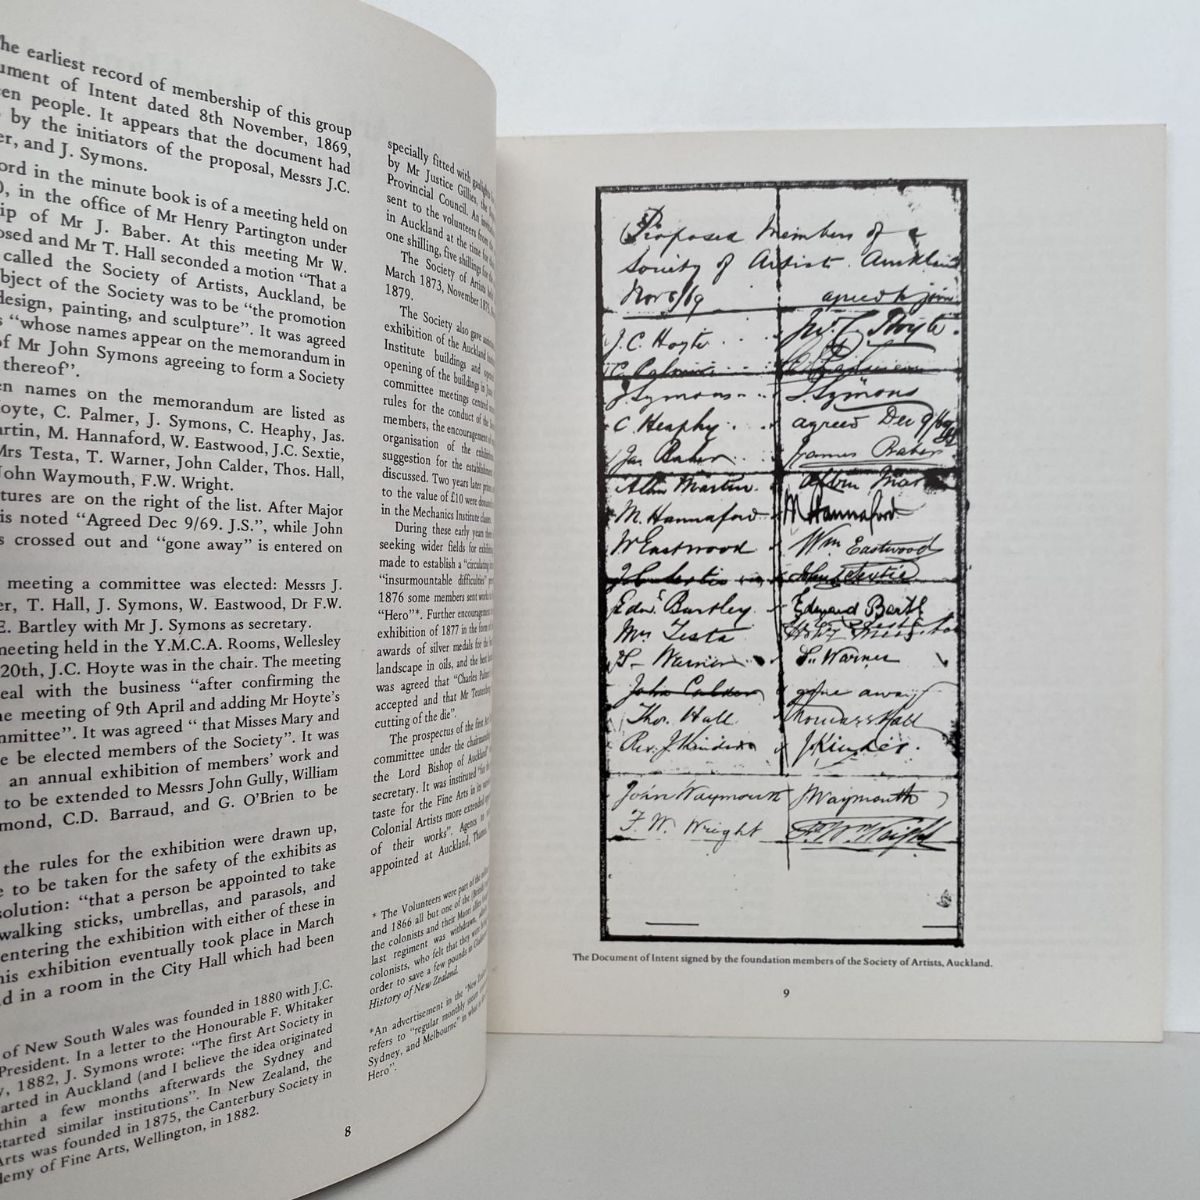 he earliest record of membership of this group
ument of Intent dated 8th November, 1869,
en people. It appears that the document had
by the initiators of the proposal, Messrs J.C.
er, and J. Symons.
ord in the minute book is of a meeting held on
), in the office of Mr Henry Partington under
ip of Mr J. Baber. At this meeting Mr W.
osed and Mr T. Hall seconded a motion "That a
called the Society of Artists, Auckland, be
bject of the Society was to be "the promotion
design, painting, and sculpture". It was agreed
s "whose names appear on the memorandum in
of Mr John Symons agreeing to form a Society
thereof".
en names on the memorandum are listed as
oyte, C. Palmer, J. Symons, C. Heaphy, Jas.
artin, M. Hannaford, W. Eastwood, J.C. Sextie,
Mrs Testa, T. Warner, John Calder, Thos. Hall,
ohn Waymouth, F.W. Wright.
tures are on the right of the list. After Major
is noted "Agreed Dec 9/69. J.S.", while John
s crossed out and "gone away" is entered on
meeting a committee was elected: Messrs J.
er, T. Hall, J. Symons, W. Eastwood, Dr F.W.
E. Bartley with Mr J. Symons as secretary.
meeting held in the Y.M.C.A. Rooms, Wellesley
20th, J.C. Hoyte was in the chair. The meeting
eal with the business "after confirming the
he meeting of 9th April and adding Mr Hoyte's
mmittee". It was agreed " that Misses Mary and
e be elected members of the Society". It was
an annual exhibition of members' work and
to be extended to Messrs John Gully, William
mond, C.D. Barraud, and G. O'Brien to be
the rules for the exhibition were drawn up,
e to be taken for the safety of the exhibits as
solution: "that a person be appointed to take
walking sticks, umbrellas, and parasols, and
entering the exhibition with either of these in
his exhibition eventually took place in March
d in a room in the City Hall which had been
of New South Wales was founded in 1880 with J.C.
President. In a letter to the Honourable F. Whitaker
y, 1882, J. Symons wrote: "The first Art Society in
arted in Auckland (and I believe the idea originated
thin a few months afterwards the Sydney and
started similar institutions". In New Zealand, the
Arts was founded in 1875, the Canterbury Society in
demy of Fine Arts, Wellington, in 1882.
8
specially fitted with gaslights
by Mr Justice Gillies, the
Provincial Council. An
sent to the volunteers from the
in Auckland at the time for the
one shilling, five shillings for the
The Society of Artists
March 1873, November 1875,
1879.
The Society also gave
exhibition of the Auckland
Institute buildings and
opening of the buildings in
committee meetings centred
rules for the conduct of the
members, the encouragement of
organisation of the exhibition
suggestion for the establishment
discussed. Two years later
to the value of £10 were
in the Mechanics Institute
During these early years
seeking wider fields for
made to establish a "circulating
"insurmountable difficulties"
1876 some members sent work
"Hero"*. Further encouragement
exhibition of 1877 in the form of
awards of silver medals for the
landscape in oils, and the best
was agreed that "Charles Palmer
accepted and that Mr Teutenberg
cutting of the die".
The prospectus of the first Art
committee under the chairmanship
the Lord Bishop of Auckland
secretary. It was instituted "for the
taste for the Fine Arts in its
Colonial Artists more extended
of their works". Agents
appointed at Auckland, Thames,
* The Volunteers were part of the
and 1866 all but one of the
the colonists and their Maori allies
last regiment was withdrawn,
colonists, who felt that they were
order to save a few pounds
History of New Zealand.
*An advertisement in the "New
refers to "regular monthly
Sydney, and Melbourne" in
Hero".
Proposed Members of a
Society of Artists. Auckland
Nov 8/69 agreed to join
J.C. Hoyte Jno. C. Hoyte.
C. Palmer
J Symons J Symons
C. Heaphy agreed Dec 9/69 JS
Jas Baber James Baber
Albin Martin Albin Mart
M. Hannaford M Hannaford
W Eastwood Wm Eastwood
J C Sextie John C Sextie
Edw. Bartley Edward Bartl
Mrs Testa
T. Warner T. Warner
John Calder gone away
Thos. Hall Thomas Hall
Rev. J. Kinder J. Kinder.
John Waymouth J Waymouth
F. W. Wright F. W. Wright
The Document of Intent signed by the foundation members of the Society of Artists, Auckland.
9